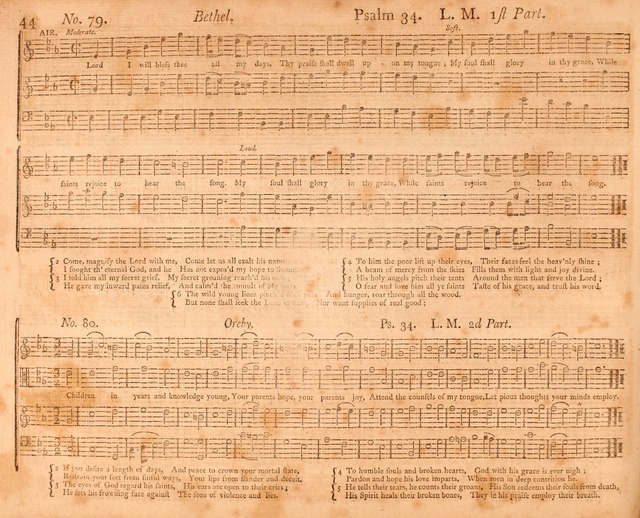 44 No. 79. Bethel. Psalm 34. L. M. 1st Part.
AIR. Moderate. Soft.
Lord I will bless thee all my days, Thy praise shall dwell up - on my tongue; My soul shall glory in thy grace, While
Loud.
saints rejoice to hear the song. My soul shall glory in thy grace, While saints rejoice to hear the song.
2 Come, magnify the Lord with me, Come let us all exalt his name
I sought th' eternal God, and he Has not expos'd my hope to shame.
3 I told him all my secret grief. My secret groaning reach'd his
He gave my inward pains relief, And calm'd the tumult of
4 To him the poor lift up their eyes, Their faces feel the heav'nly shine;
A beam of mercy from the skies Fills them with light and joy divine.
5 His holy angels pitch their tents Around the men that serve the Lord;
O fear and love him all ye saints Taste of his grace, and trust his word.
6 The wild young lions And hunger, roar through all the wood,
But none shall seek the Lord Nor want supplies of real good:
No. 80. Oreby. Ps. 34. L. M. 2d Part.
Children in years and knowledge young, Your parents hope, your parents joy, Attend the counsels of my tongue, Let pious thoughts your minds employ.
2 If you desire a length of days, And peace to crown your mortal state,
Restrain your feet from sinful ways, Your lips from slander and deceit.
3 The eyes of God regard his saints, His ears are open to their cries;
He sets his frowning face against The sons of violence and lies.
4 To humble souls and broken hearts, God with his grace is ever nigh;
Pardon and hope his love imparts, When men in deep contrition lie.
5 He tells their tears, he counts their groans, His Son redeems their souls from death,
His Spirit heals their broken bones, They in his praise employ their breath.